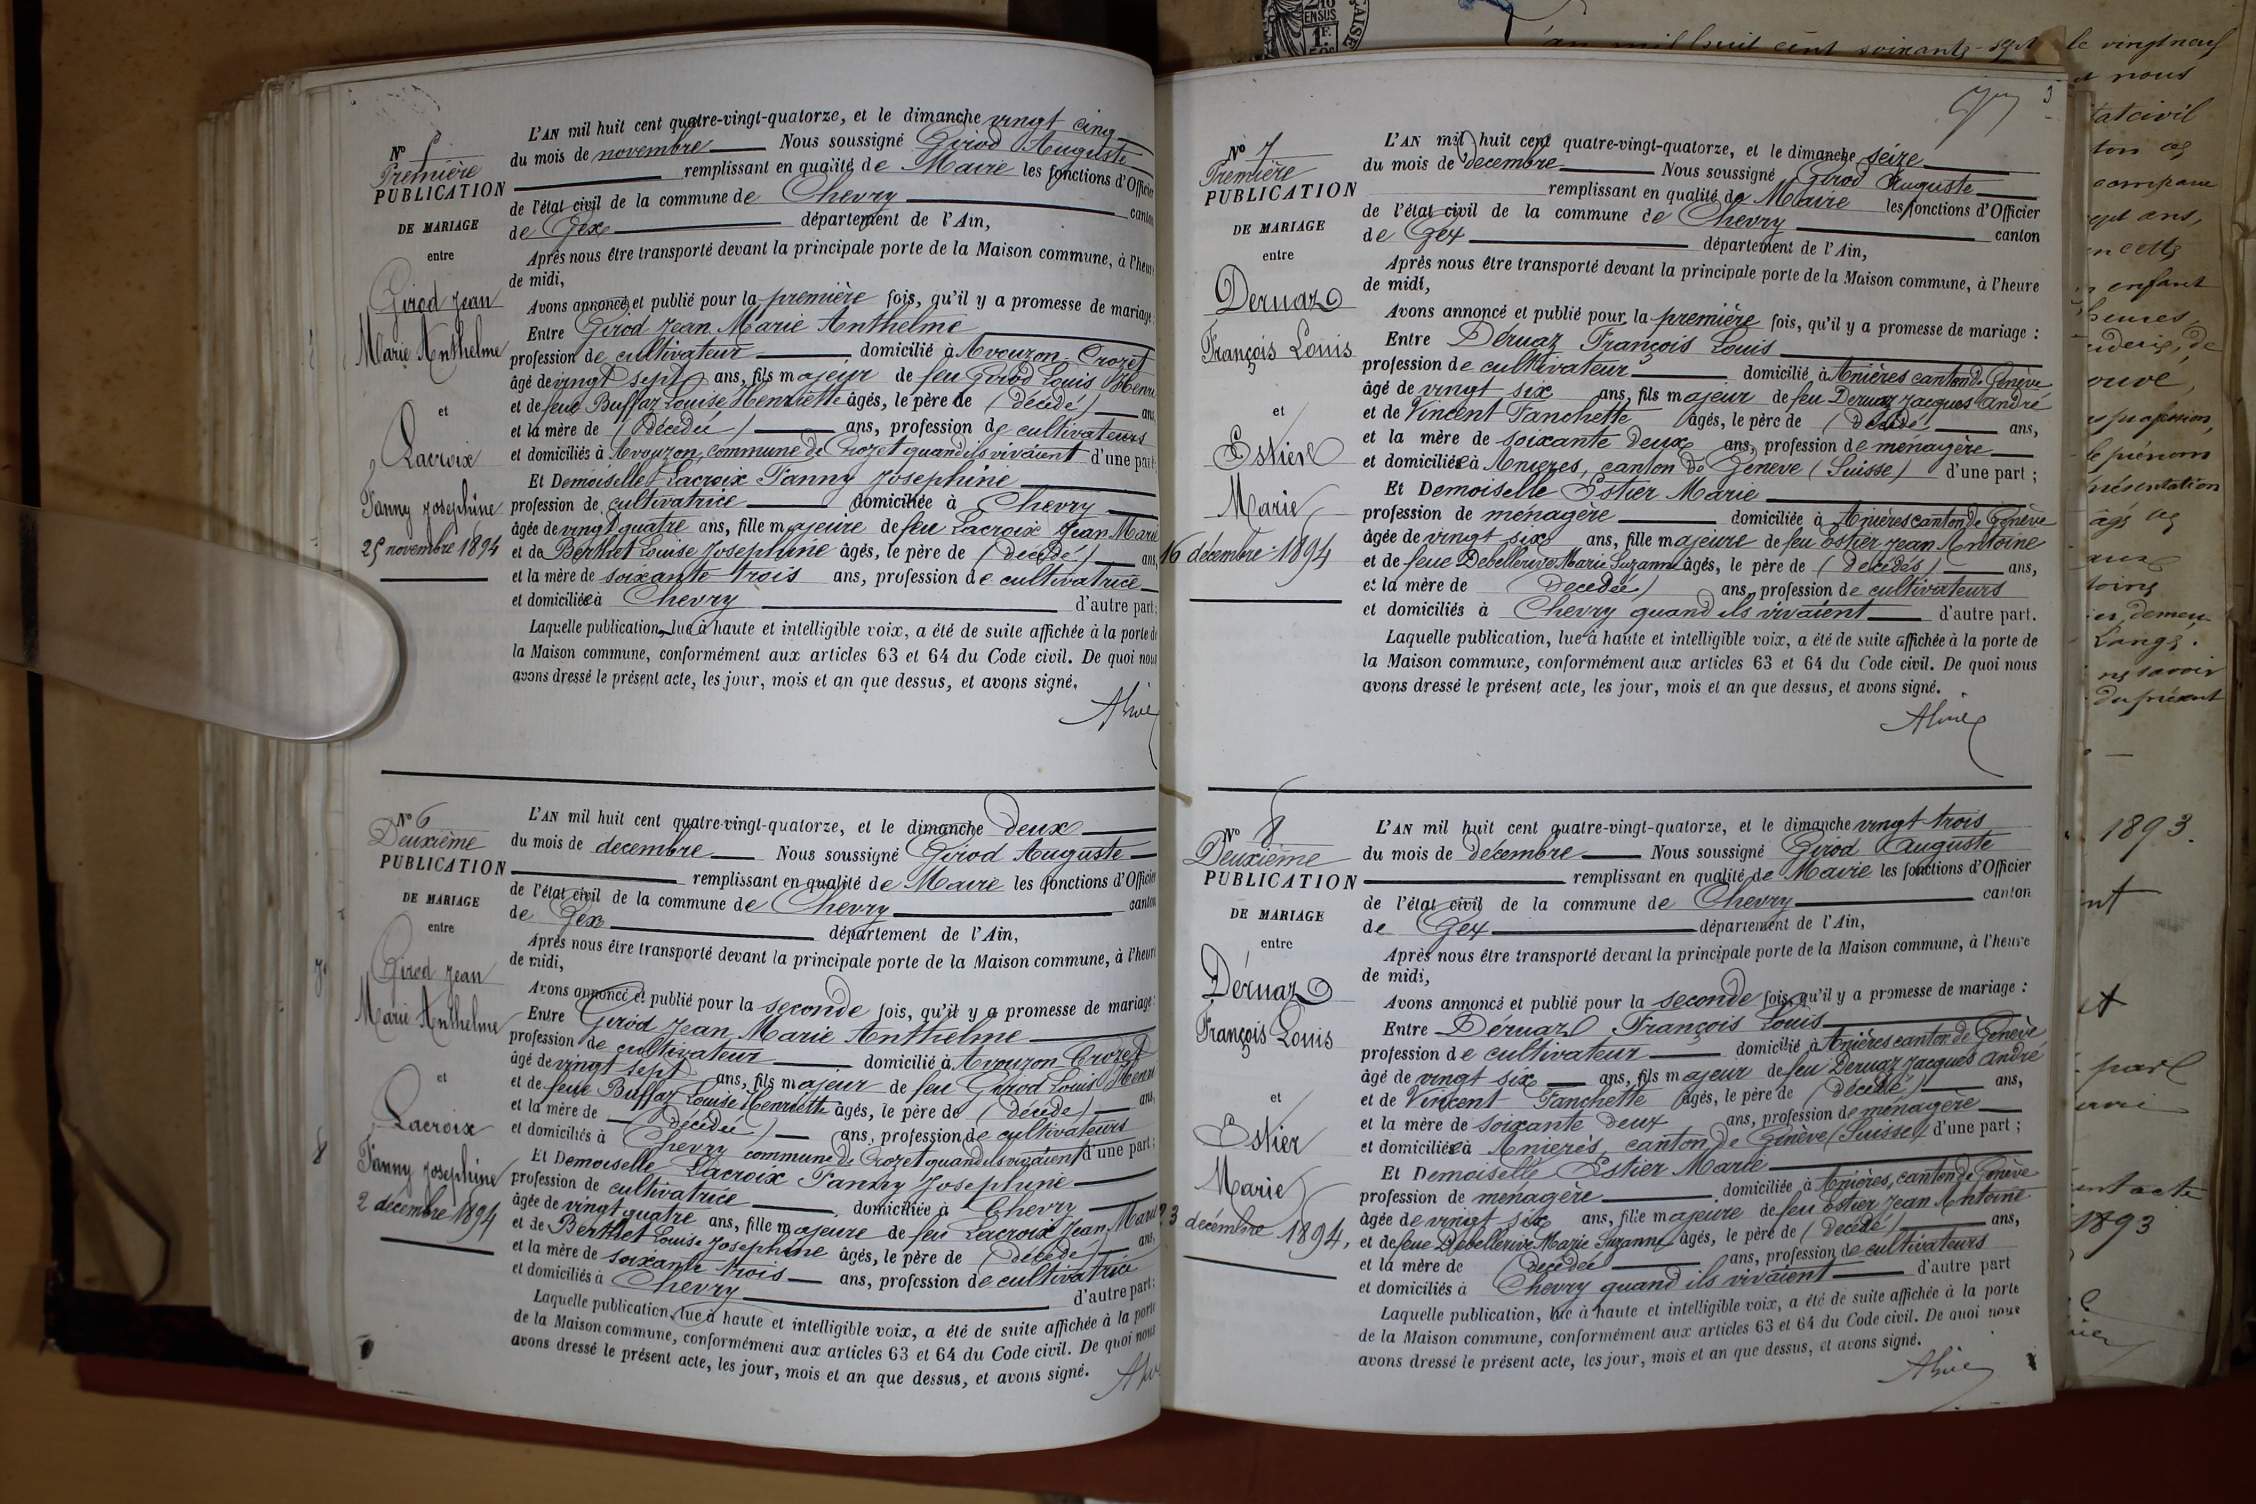 N° 5
Première
PUBLICATION
DE MARIAGE
entre
Girod Jean
Marie Anthelme
et
Lacroix
Fanny Josephine
25 novembre 1894
L'AN mil huit cent quatre-vingt-quatorze, et le dimanche vingt cinq
du mois de novembre Nous soussigné Girod Auguste
remplissant en qualité de Maire les fonctions d'Officier
de l'état civil de la commune de Chevry canton
de Gex département de l'Ain,
Après nous être transporté devant la principale porte de la Maison commune, à l'heure
de midi,
Avons annoncé et publié pour la première fois, qu'il y a promesse de mariage
Entre Girod Jean Marie Anthelme
profession de cultivateur domicilié à Avouzon Crozet
âgé de vingt sept ans, fils majeur de feu Girod Louis Henri
et de feue Buffaz Louise Henriette âgés, le père de (décédé) ans
et la mère de (décédée) ans, profession de cultivateurs
et domiciliés à Avouzon, commune de Crozet quand ils vivaient d'une part
Et Demoiselle Lacroix Fanny Josephine
profession de cultivatrice domiciliée à Chevry
âgée de vingt quatre ans, fille majeure de feu Lacroix Jean Marie
et de Berthet Louise Josephine âgés, le père de (décédé) ans,
et la mère de soixante trois ans, profession de cultivatrice
et domiciliée à Chevry d'autre part;
Laquelle publication, lue à haute et intelligible voix, a été de suite affichée à la porte de
la Maison commune, conformément aux articles 63 et 64 du Code civil. De quoi nous
avons dressé le présent acte, les jour, mois et an que dessus, et avons signé.
N° 6
Deuxième
PUBLICATION
DE MARIAGE
entre
Girod Jean
Marie Anthelme
et
Lacroix
Fanny Josephine
2 décembre 1894
L'AN mil huit cent quatre-vingt-quatorze, et le dimanche deux
du mois de decembre Nous soussigné Girod Auguste
remplissant en qualité de Maire les fonctions d'Officier
de l'état civil de la commune de Chevry canton
de Gex département de l'Ain,
Après nous être transporté devant la principale porte de la Maison commune, à l'heure
de midi,
Avons annoncé et publié pour la seconde fois, qu'il y a promesse de mariage:
Entre Girod Jean Marie Anthelme
profession de cultivateur domicilié à Avouzon Crozet
âgé de vingt sept ans, fils majeur de feu Girod Louis Henri
et de feue Buffaz Louise Henriette âgés, le père de (décédé) ans,
et la mère de (décédée) ans, profession de cultivateurs
et domiciliés à Chevry commune de Crozet quand ils vivaient d'une part;
Et Demoiselle Lacroix Fanny Josephine
profession de cultivatrice domiciliée à Chevry
âgée de vingt quatre ans, fille majeure de feu Lacroix Jean Marie
et de Berthet Louise Josephine âgés, le père de (décédé) ans,
et la mère de soixante trois ans, profession de cultivatrice
et domiciliés à Chevry d'autre part;
Laquelle publication, lue à haute et intelligible voix, a été de suite affichée à la porte
de la Maison commune, conformément aux articles 63 et 64 du Code civil. De quoi nous
avons dressé le présent acte, les jour, mois et an que dessus, et avons signé.
N° 7
Première
PUBLICATION
DE MARIAGE
entre
Deruaz
François Louis
et
Estier
Marie
16 décembre 1894
L'AN mil huit cent quatre-vingt-quatorze, et le dimanche seize
du mois de décembre Nous soussigné Girod Auguste
remplissant en qualité de Maire les fonctions d'Officier
de l'état civil de la commune de Chevry canton
de Gex département de l'Ain,
Après nous être transporté devant la principale porte de la Maison commune, à l'heure
de midi,
Avons annoncé et publié pour la première fois, qu'il y a promesse de mariage :
Entre Déruaz François Louis
profession de cultivateur domicilié à Anières canton de Genève
âgé de vingt six ans, fils majeur de feu Deruaz Jacques André
et de Vincent Fanchette âgés, le père de (décédé) ans,
et la mère de soixante deux ans, profession de ménagère
et domiciliée à Anieres, canton de Geneve (Suisse) d'une part ;
Et Demoiselle Estier Marie
profession de ménagère domiciliée à Anières canton de Genève
âgée de vingt six ans, fille majeure de feu Estier Jean Antoine
et de feue Debellerive Marie Suzanne âgés, le père de (décédés) ans,
et la mère de (décédée) ans, profession de cultivateurs
et domiciliés à Chevry quand ils vivaient d'autre part.
Laquelle publication, lue à haute et intelligible voix, a été de suite affichée à la porte de
la Maison commune, conformément aux articles 63 et 64 du Code civil. De quoi nous
avons dressé le présent acte, les jour, mois et an que dessus, et avons signé.
N° 8
Deuxième
PUBLICATION
DE MARIAGE
entre
Déruaz
François Louis
et
Estier
Marie
23
décembre 1894.
L'AN mil huit cent quatre-vingt-quatorze, et le dimanche vingt trois
du mois de décembre Nous soussigné Girod Auguste
remplissant en qualité de Maire les fonctions d'Officier
de l'état civil de la commune de Chevry canton
de Gex département de l'Ain,
Après nous être transporté devant la principale porte de la Maison commune, à l'heure
de midi,
Avons annoncé et publié pour la seconde fois, qu'il y a promesse de mariage :
Entre Déruaz François Louis
profession de cultivateur domicilié à Anières canton de Genève
âgé de vingt six ans, fils majeur de feu Deruaz Jacques André
et de Vincent Fanchette âgés, le père de (décédé) ans,
et la mère de soixante deux ans, profession de ménagère
et domiciliée à Anierès, canton de Genève (Suisse) d'une part ;
Et Demoiselle Estier Marie
profession de ménagère domiciliée à Anières, canton de Genève
âgée de vingt six ans, fille majeure de feu Estier Jean Antoine
et de feue Debellerive Marie Suzanne âgés, le père de (décédé) ans,
et la mère de (décédée ans, profession de cultivateurs
et domiciliés à Chevry quand ils vivaient d'autre part
Laquelle publication, lue à haute et intelligible voix, a été de suite affichée à la porte
de la Maison commune, conformément aux articles 63 et 64 du Code civil. De quoi nous
avons dressé le présent acte, les jour, mois et an que dessus, et avons signé.
le vingt neuf
nous
1893.
1893